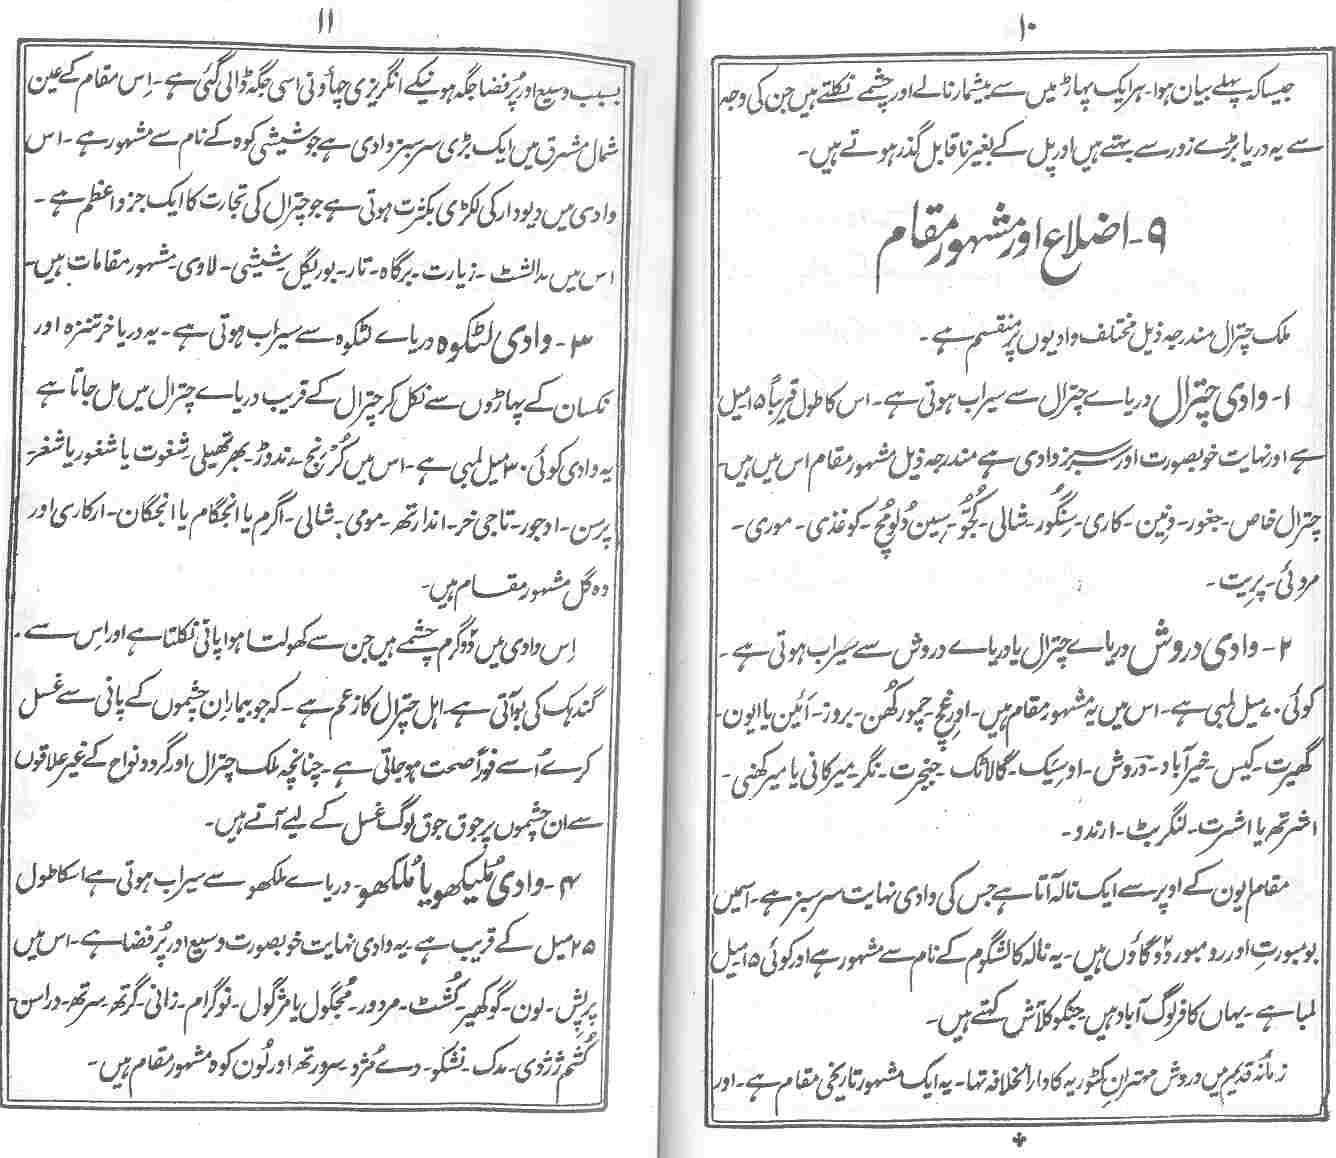 ۱۰
جیسا کہ پہلے بیان ہوا۔ ہر ایک پہاڑ میں سے بیشمار نالے اور چشمے نکلتے ہیں جن کی وجہ
سے یہ دریا بڑے زور سے بہتے ہیں اور پل کے بغیر ناقابل گذر ہوتے ہیں۔
۹۔ اضلاع اور مشہور مقام
ملک چترال مندرجہ ذیل مختلف وادیوں پر منقسم ہے۔
۱۔ وادی چترال دریاے چترال سے سیراب ہوتی ہے۔ اس کا طول قریباً ۱۵ میل
ہے اور نہایت خوبصورت اور سرسبز وادی ہے مندرجہ ذیل مشہور مقام اس میں ہیں
چترال خاص۔ جغور۔ دنین۔ کاری۔ سنگور۔ شالی۔ کجُو۔ سین دلوچ۔ کوغذی۔ موری۔
مروئی۔ پریت۔
۲۔ وادی دروش دریاے چترال یا دریاے دروش سے سیراب ہوتی ہے۔
کوئی ۷۰ میل لمبی ہے۔ اس میں یہ مشہور مقام ہیں۔ اورغچ۔ چمورکھن۔ بروز۔ آئین یا ایون۔
گھیرت۔ کیس۔ خیرآباد۔ دروش۔ اوسیک۔ گالاٹک۔ جنجرت۔ نگر۔ میرکانی یا میرکھنی۔
اشرتھ یا اشرت۔ لنگربٹ۔ ارندو۔
مقام ایون کے اوپر سے ایک نالہ آتا ہے جس کی وادی نہایت سرسبز ہے۔ اسمیں
بومبورت اور رومبور دو گاؤں ہیں۔ یہ نالہ کالشگوم کے نام سے مشہور ہے اور کوئی ۱۵ میل
لمبا ہے۔ یہاں کافر لوگ آباد ہیں جنکو کلاش کہتے ہیں۔
زمانہ قدیم میں دروش مہتران کٹوریہ کا دارالخلافہ تھا۔ یہ ایک مشہور تاریخی مقام ہے۔ اور
۱۱
بسبب وسیع اور پُرفضا جگہ ہونیکے انگریزی چھاؤنی اسی جگہ ڈالی گئی ہے۔ اِس مقام کے عین
شمال مشرق میں ایک بڑی سرسبز وادی ہے جو شیشی کوہ کے نام سے مشہور ہے۔ اس
وادی میں دیودار کی لکڑی بکثرت ہوتی ہے جو چترال کی تجارت کا ایک جزو اعظم ہے۔
اس میں مدالشٹ۔ زیارت۔ برگاہ۔ تار۔ پوریگل۔ شیشی۔ لاوی۔ مشہور مقامات ہیں۔
۳۔ وادی لٹکوہ دریاے لٹکوہ سے سیراب ہوتی ہے۔ یہ دریا خرتنزہ اور
نکسان کے پہاڑوں سے نکل کر چترال کے قریب دریاے چترال میں مل جاتا ہے
یہ وادی کوئی ۳۰ میل لمبی ہے۔ اس میں کُربنج۔ بھرتھیلی۔ شغوت یا شغور یا شغر۔
پرسن۔ اوجور۔ تاجی خر۔ اندارتھ۔ مومی۔ شالی۔ اگرم یا انجگام یا انجگان۔ ارکاری اور
دہ گل مشہور مقام ہیں۔
اِس وادی میں دو گرم چشمے ہیں جن سے کھولتا ہوا پانی نکلتا ہے اور اِس سے۔
گندہک کی بو آتی ہے۔ اہل چترال کا زعم ہے۔ کہ جو بیمار اِن چشموں کے پانی سے غسل
کرے اُسے فوراً صحت ہوجاتی ہے۔ چنانچہ ملک چترال اور گرد و نواح کے غیر علاقوں
سے ان چشموں پر جوق جوق لوگ غسل کے لیے آتے ہیں۔
۴۔ وادی مُلیکھو یا مُلکھو۔ دریاے ملکھو سے سیراب ہوتی ہے اسکا طول
۲۵ میل کے قریب ہے۔ یہ وادی نہایت خوبصورت وسیع اور پُرفضا ہے۔ اس میں
پرپش۔ لون۔ گوکھیر۔ کُشٹ۔ مردور۔ مُجگول یا مزگول۔ نوگرام۔ زانی۔ گرتھ۔ سرتھ۔ دراسن
کُشم۔ مدک۔ نشکو۔ دے مُژد۔ سورتھ اور لون کوہ مشہور مقام ہیں۔